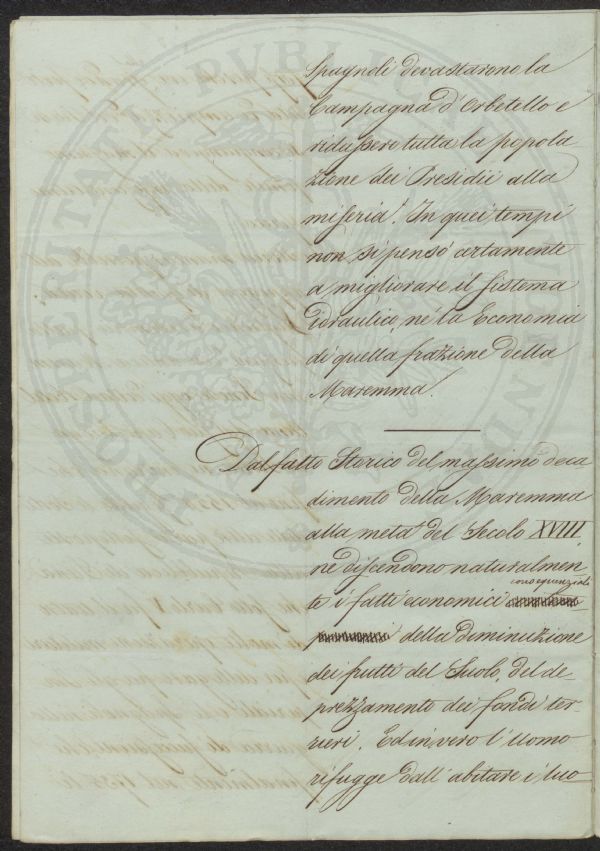 Spagnoli devastarono la
Campagna d'Orbetello e
ridussero tutta la popola
zione dei Presidii alla
miseria. In quei tempi
non si pensò certamente
a migliorare il sistema
idraulico, nè la Economia
di quella frazione della
Maremma.
Dal fatto Storico del massimo deca
dimento della Maremma
alla metà del Secolo XVIII
ne discendono naturalmen
consequenziali
te i fatti economici
della diminuzione
dei frutti del Suolo, del de-
prezzamento dei fondi ter-
rieri. Ed invero l'Uomo
rifugge dall'abitare i luo